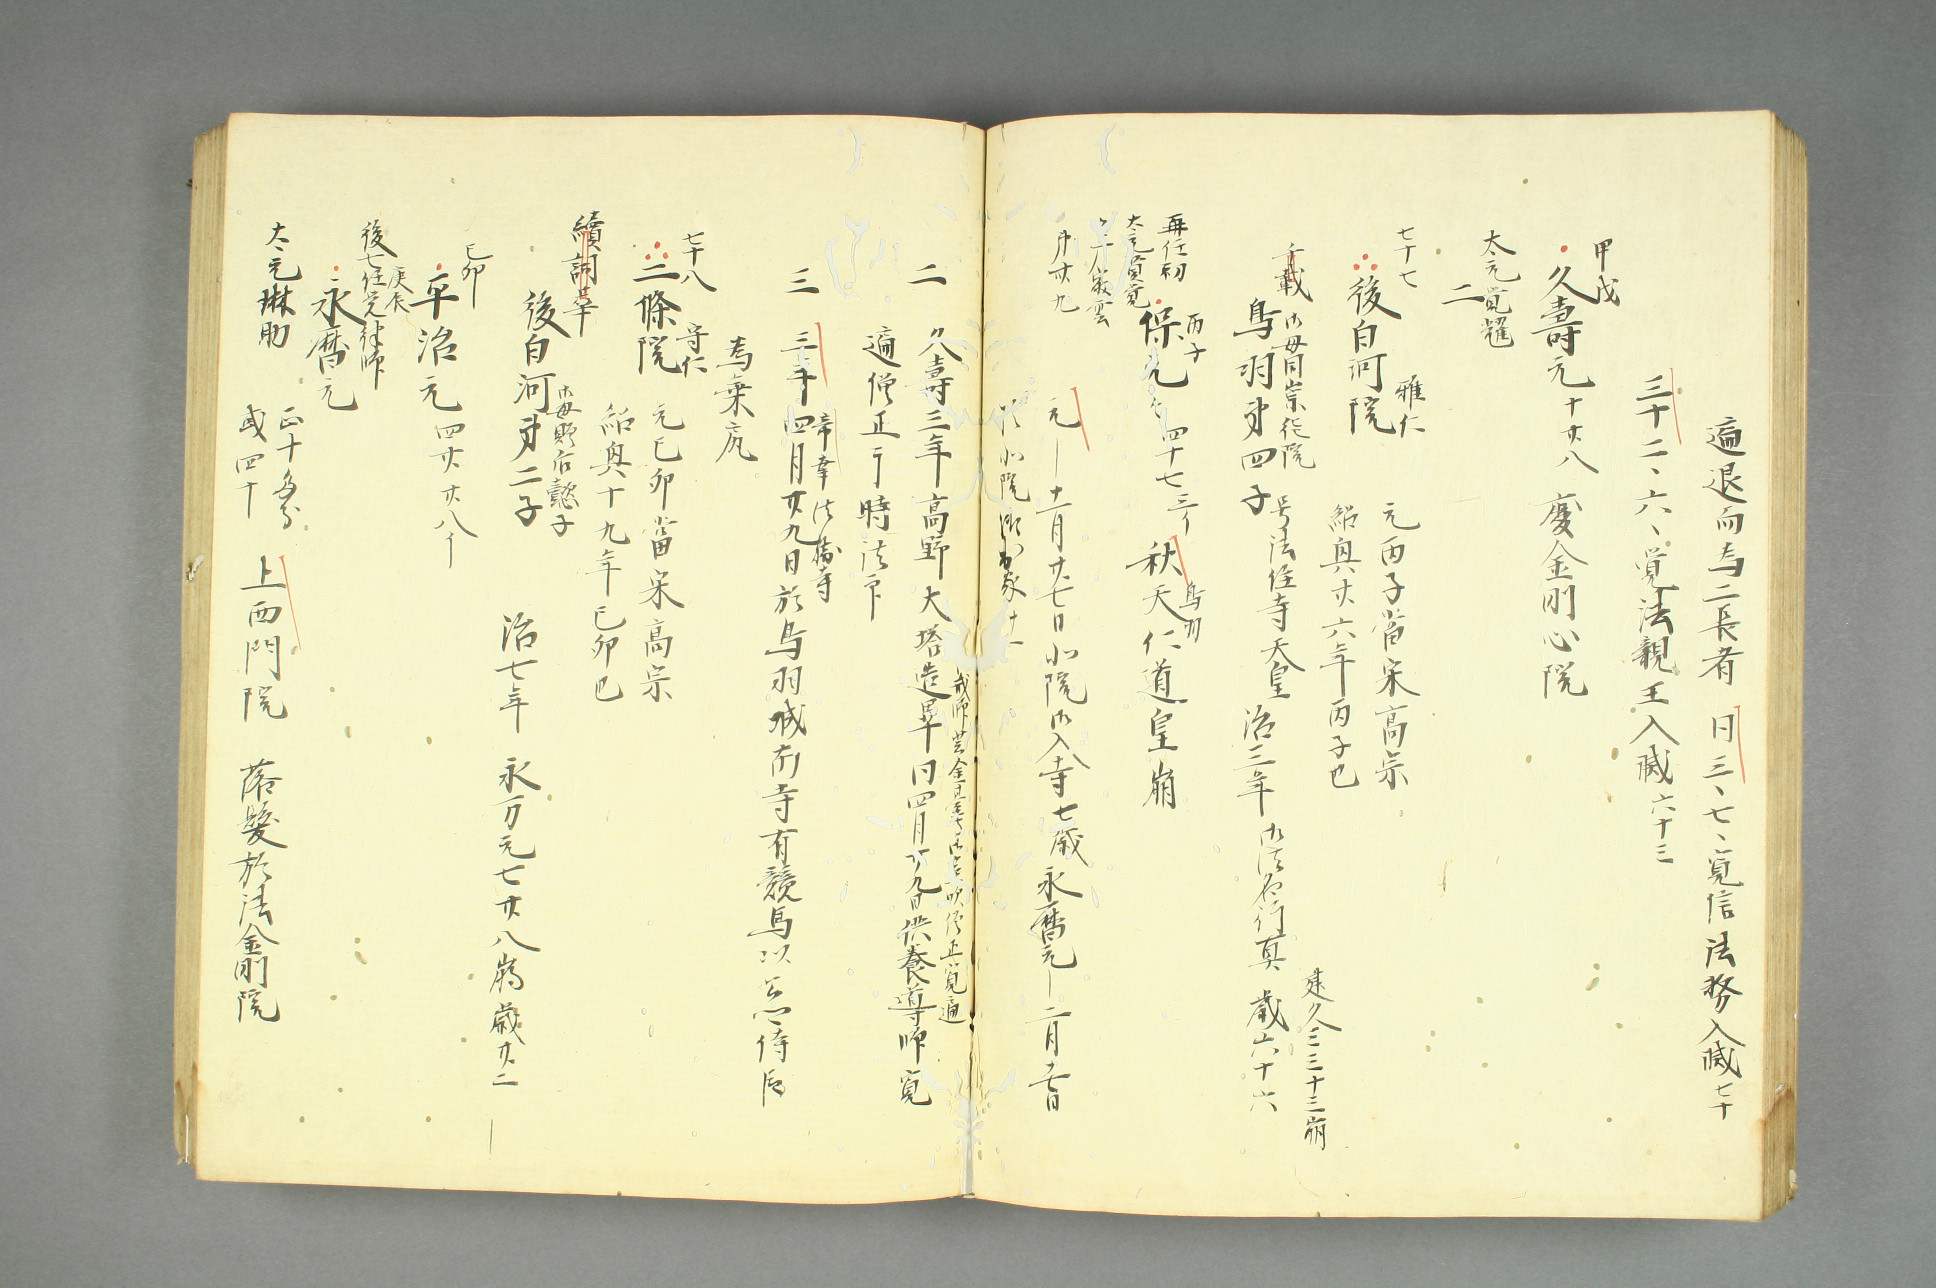 遍退而為二長者 同三、七、寛信法務入滅七十
三十二、六、覚法親王入滅六十三
甲戌
久壽元 十廿八 慶金剛心院
太元覚耀
二
七十七
後白河院 雅仁
元丙子當宋髙宗
紹興廿六年丙子也
千載
御母同崇徳院
鳥羽才四子 号法住寺天皇 治三年 御法名行真 歳六十六
建久三三十三崩
丙子
保元 四十七 秋天仁道皇崩
鳥羽
再任初
太元寛覚
元 十一月廿七日北院御入寺七歳永暦元 二月十七日
二 久壽三年髙野大塔造畢同四月廿九日供養導師寛
遍僧正于時法印
三 三年四月廿九日於鳥羽城南寺有競馬以公卿侍臣
帝幸法勝寺
為乗尻
七十八
二條院 守仁
元己卯當宋髙宗
紹興十九年己卯也
續詞華
御母贈后懿子
後白河才二子 治七年 永万元七廿八崩歳廿二
己卯
平治元 四廿
後七任覚 律師
庚辰
永暦元
太元琳助
正十
或四十 上西門院 落髪於法金剛院